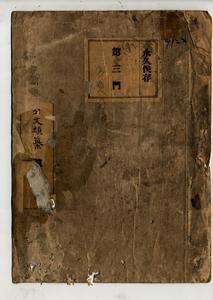 永久保存
第三門
公文類纂